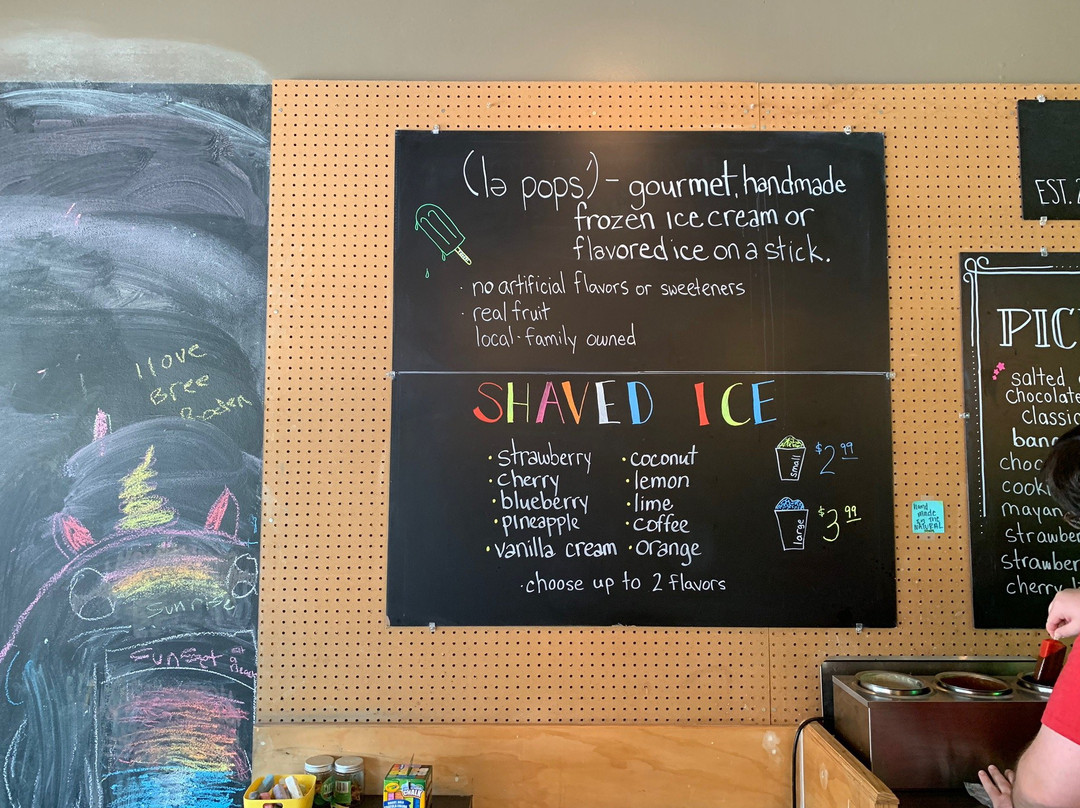 I love
Bree
Sunrise
Sunset at
(lə pops′) – gourmet, handmade
frozen ice cream or
flavored ice on a stick.
· no artificial flavors or sweeteners
· real fruit
local · family owned
SHAVED ICE
• strawberry
• cherry
• blueberry
• pineapple
• vanilla cream
• coconut
• lemon
• lime
• coffee
• orange
small $2.99
large $3.99
· choose up to 2 flavors
Hand
made
EST. 2
PIC
salted
chocolate
classic
ban
choc
cooki
mayan
strawber
strawber
cherry
CHALK